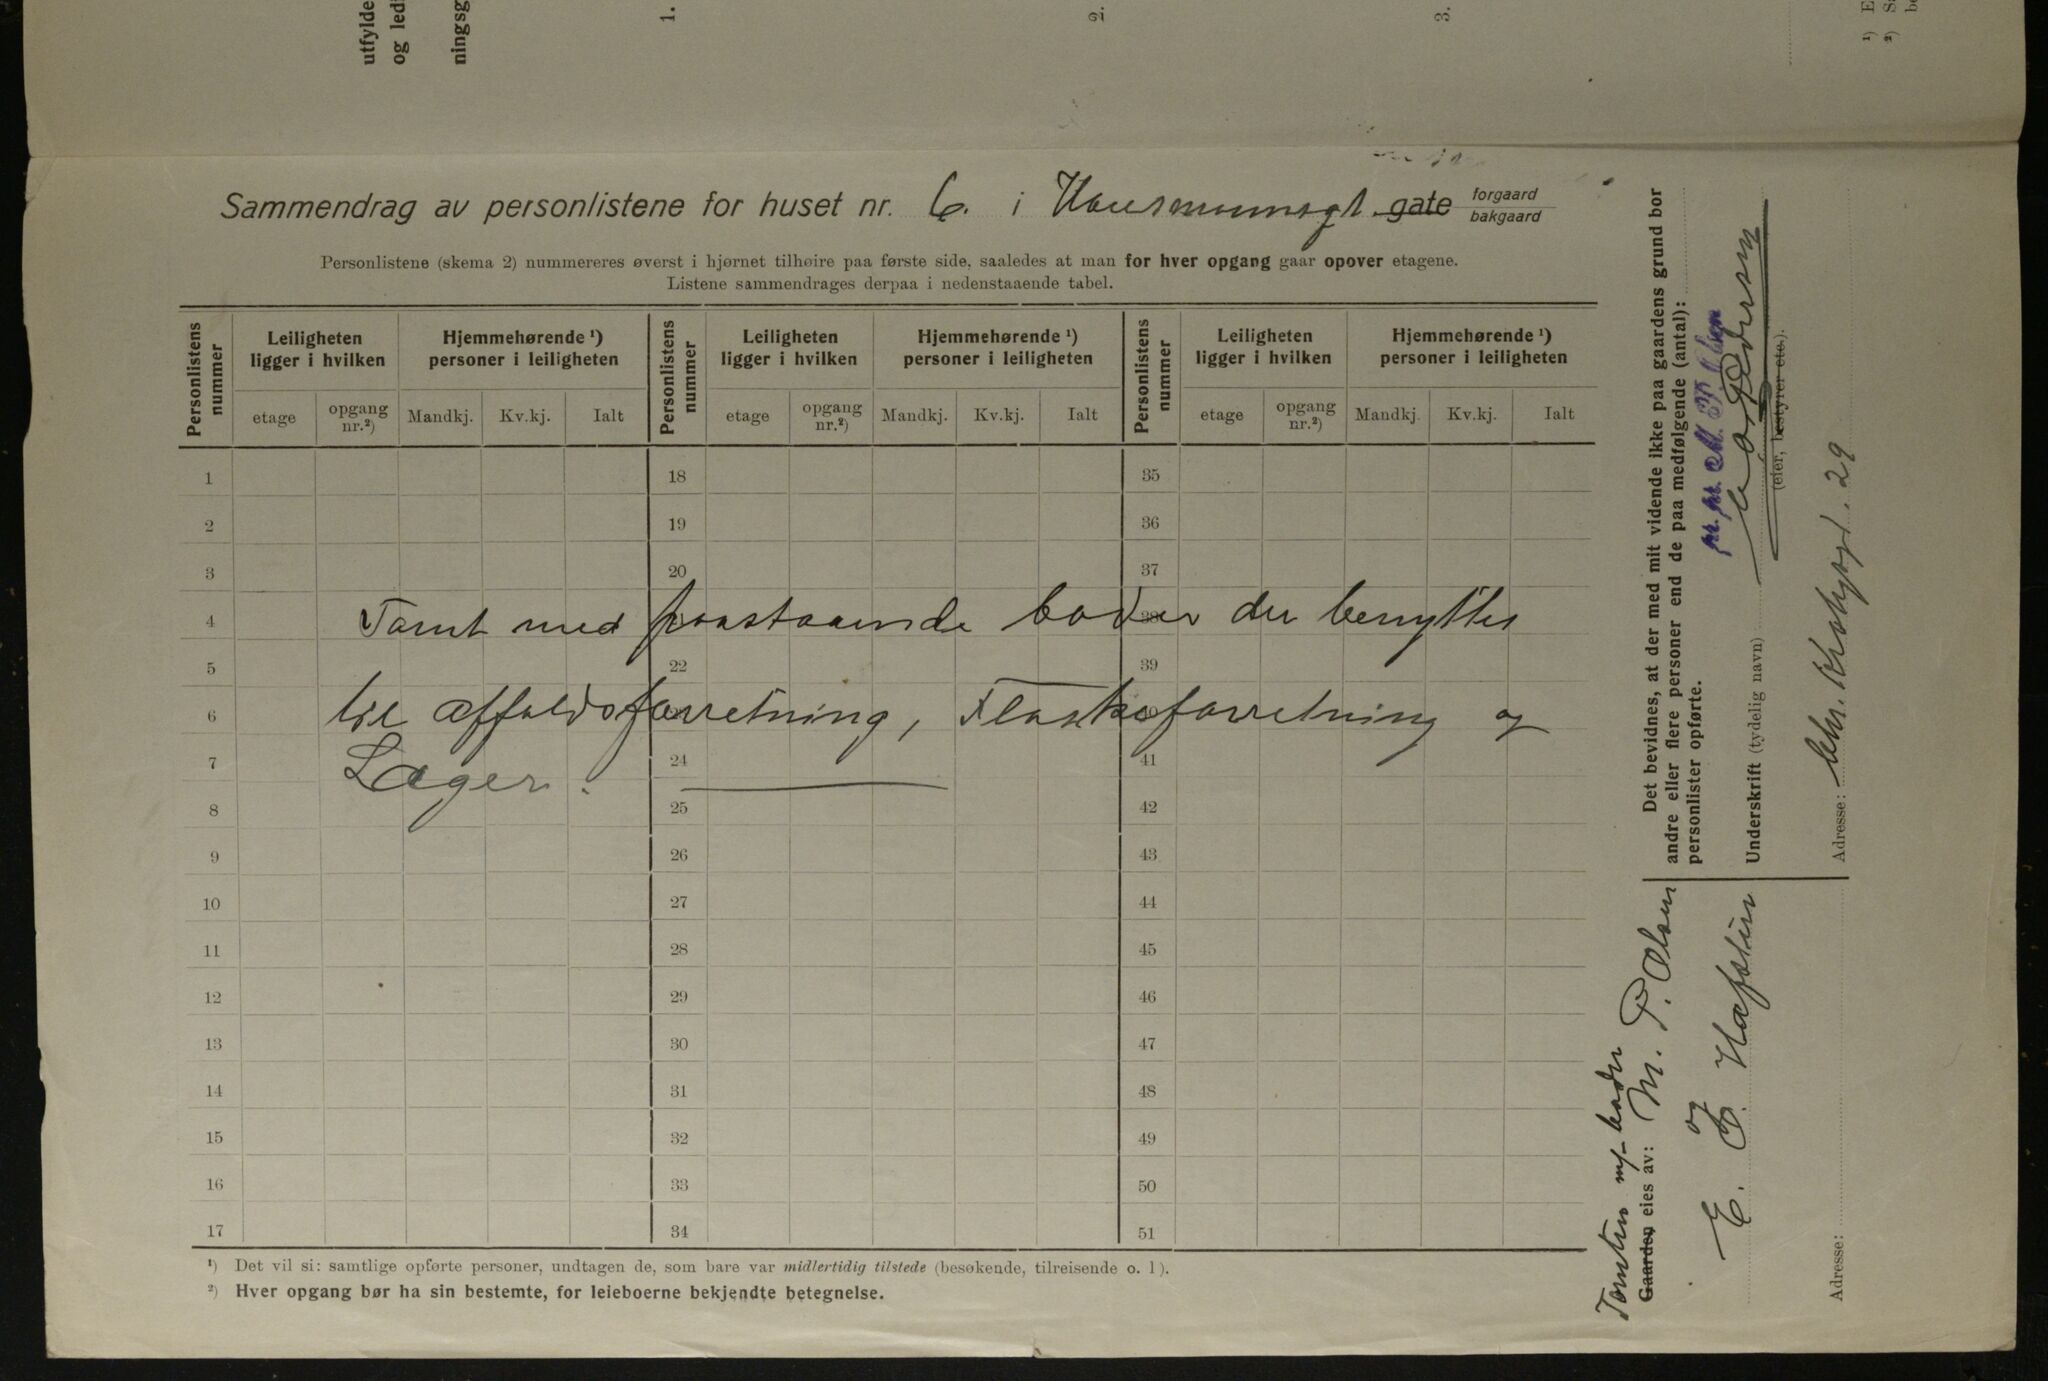 utfylde
og ledi
ningsg
1.
2.
3.
¹) E
²) Sa
be
Sammendrag av personlistene for huset nr. 6. i Hausmannsgt. gate forgaard bakgaard
Personlistene (skema 2) nummereres øverst i hjørnet tilhøire paa første side, saaledes at man for hver opgang gaar opover etagene.
Listene sammendrages derpaa i nedenstaaende tabel.
Personlistens nummer Leiligheten ligger i hvilken Hjemmehørende ¹) personer i leiligheten Personlistens nummer Leiligheten ligger i hvilken Hjemmehørende ¹) personer i leiligheten Personlistens nummer Leiligheten ligger i hvilken Hjemmehørende ¹) personer i leiligheten
etage opgang nr.²) Mandkj. Kv.kj. Ialt etage opgang nr.²) Mandkj. Kv.kj. Ialt etage opgang nr.²) Mandkj. Kv.kj. Ialt
1 18 35
2 19 36
3 20 37
4 38
Tomt med paastaaende boder der benyttes
5 22 39
6
til affaldsforretning, Flaskeforretning og
7 24 41
Lager.
8 25 42
9 26 43
10 27 44
11 28 45
12 29 46
13 30 47
14 31 48
15 32 49
16 33 50
17 34 51
¹) Det vil si: samtlige opførte personer, undtagen de, som bare var midlertidig tilstede (besøkende, tilreisende o. l).
²) Hver opgang bør ha sin bestemte, for leieboerne bekjendte betegnelse.
Det bevidnes, at der med mit vidende ikke paa gaardens grund bor
andre eller flere personer end de paa medfølgende (antal):
personlister opførte.
pr. pr. M. P. Olsen
Underskrift (tydelig navn) Pedersen
(eier, bestyrer etc.).
Adresse: Chr. Krohgsgt. 29
Tomten m/ boder
Gaarden eies av: M. P. Olsen
og
E. Hafstein
Adresse: